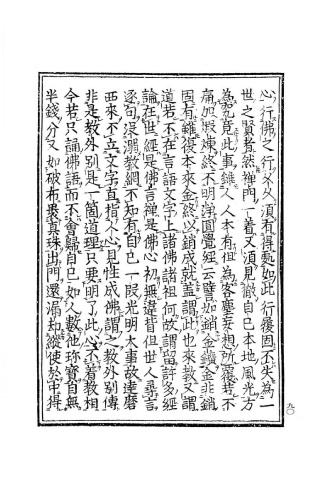 心行佛之行久久須有得處如此行履固不失為一
世之賢者然禪門一着又須見徹自己本地風光方
為究竟此事雖人人本有但為客塵妄想所覆若不
痛加煅煉終不明淨圓覺經云譬如銷金鑛金非銷
固有雖復本來金終以銷成就蓋謂此也來教又謂
道若不在言語文字上諸佛諸祖何故謂留許多經
論在世經是佛言禪是佛心初無違背但世人尋言
逐句沒溺教網不知有自己一段光明大事故達磨
西來不立文字直指人心見性成佛謂之教外別傳
非是教外別是一箇道理只要明了此心不着教相
今若只誦佛語而不會歸自己如人數他珍寶自無
半錢分又如破布裹真珠出門還漏却縱使於中得
九〇